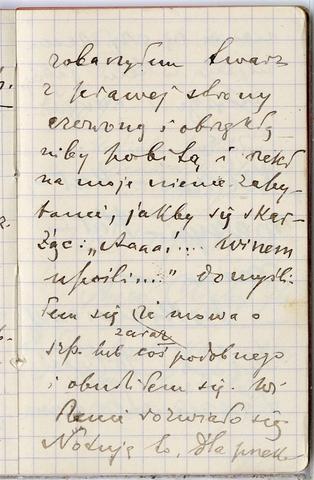 zobaczyłem twarz
z prawej strony
czerwoną i obrzękłą
niby pobitą i rzekł
na moje nieme zapy-
tanie, jakby się skar-
żąc: „Aaaa!... winem
upoili....” domyśli-
łem się że mowa o
zaraz
lub coś podobnego
i obudziłem się. Wi-
dzenie rozwiało się
Notuję to, dla